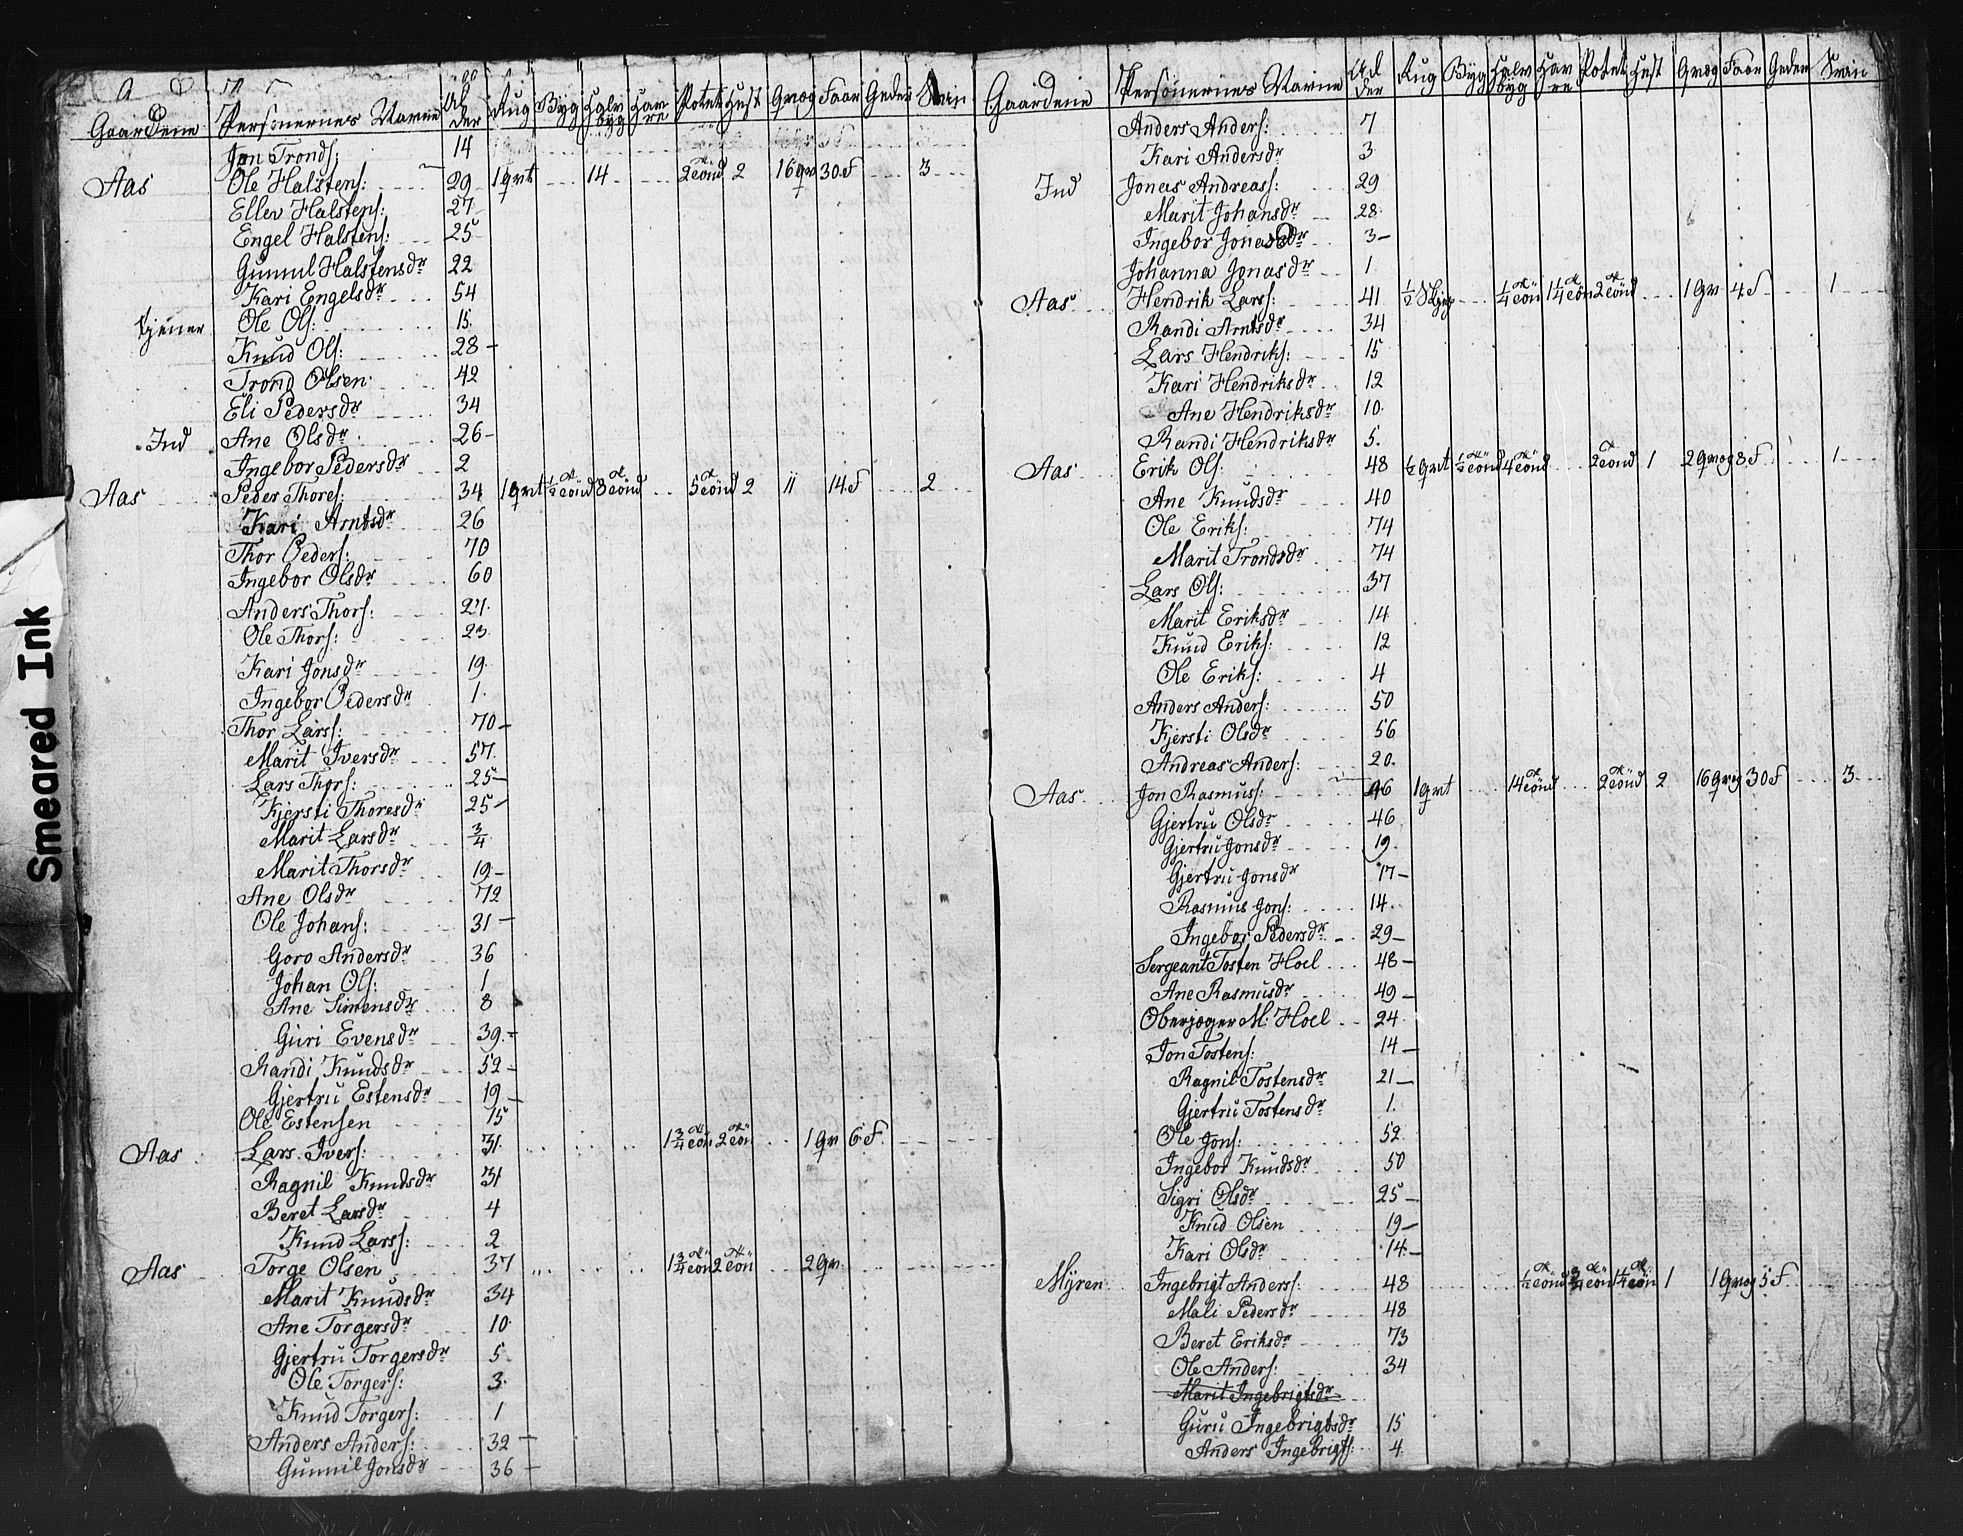 Gaardene Personernes Navne Al der Rug Byg Halv byg Hav re Potet Hest Qvæg Faar Geder Svin
Jon Tronds: 14
Aas Ole Halstens: 29 1 qvt 14 2 Tönd 2 16 qv 30 F 3
Ellev Halstens: 27
Engel Halstens: 25
Gunnul Halstensdr 22
Kari Engelsdr 54
tjener Ole Ols: 15
Knud Ols: 28
Trond Olsen 42
Eli Pedersdr 34
Ind Ane Olsdr 26
Ingebor Pedersdr 2
Aas Peder Thores: 34 1 qvt 1/2 Tönd 8 Tönd 5 Tönd 2 11 14 F 2
Kari Arntsdr 26
Thor Peders: 70
Ingebor Olsdr 60
Anders Thors: 27
Ole Thors: 23
Kari Jonsdr 19
Ingebor Pedersdr 1
Thor Larss: 70
Marit Iversdr 57
Lars Thors: 25
Kjersti Thoresdr 25
Marit Larsdr 3/4
Marit Thorsdr 19
Ane Olsdr 72
Ole Johans: 31
Goro Andersdr 36
Johan Ols: 1
Ane Simensdr 8
Guri Evensdr 39
Randi Knudsdr 52
Gjertru Estensdr 19
Ole Estensen 15
Aas Lars Ivers: 31 1 3/4 Tön 2 Tön 1 qv 6 F.
Ragnil Knudsdr 31
Beret Larsdr 4
Knud Larss: 2
Aas Torge Olsen 37 1 3/4 Tön 2 Tön 2 qv
Marit Knudsdr 34
Ane Torgersdr 10
Gjertru Torgersdr 5
Ole Torgers: 3
Knud Torgers: 1
Anders Anders: 32
Gunnil Jonsdr 36
Gaardene Personernes Navne Al der Rug Byg Halv byg Hav re Potet Hest Qvæg Faar Geder Svin
Anders Anders: 7
Kari Andersdr 3
Ind Jonas Andreass: 29
Marit Johansdr 28
Ingebor Jonasdr 3
Johanna Jonasdr 1
Aas Hendrik Larss: 41 1/2 Skjep 1/4 Tön 1 1/4 Tön 2 Tönd 1 qv 4 F 1
Randi Arntsdr 34
Lars Hendriks: 15
Kari Hendriksdr 12
Ane Hendriksdr 10
Randi Hendriksdr 5
Aas Erik Ols: 48 1/2 qvt 1/2 Tönd 4 Tönd 2 Tönd 1 2 qvæg 8 F 1
Ane Knudsdr 40
Ole Eriks: 74
Marit Trondsdr 74
Lars Ols: 37
Marit Eriksdr 14
Knud Eriks: 12
Ole Eriks: 4
Anders Anders: 50
Kjersti Olsdr 56
Andreas Anders: 20
Aas Jon Rasmuss: 46 1 qvt 14 Tönd 2 Tönd 2 16 qvæg 30 F 3
Gjertru Olsdr 46
Gjertru Jonsdr 19
Gjertru Jonsdr 17
Rasmus Jons: 14
Ingebor Pedersdr 29
Sergeant Tosten Hoel 48
Ane Rasmusdr 49
Oberjæger M: Hoel 24
Jon Tostens: 14
Ragnil Tostensdr 21
Gjertru Tostensdr 1
Ole Jons: 52
Ingebor Knudsdr 50
Sigri Olsdr 25
Knud Olsen 19
Kari Olsdr 14
Myren Ingebrigt Anders: 48 1/2 Tönd 3/4 Tönd 1 1/4 Tön 1 1 qvæg 5 F
Mali Pedersdr 48
Beret Eriksdr 73
Ole Anders: 34
Marit Ingebrigtsdr
Guru Ingebrigtsdr 15
Anders Ingebrigts: 4
Smeared Ink